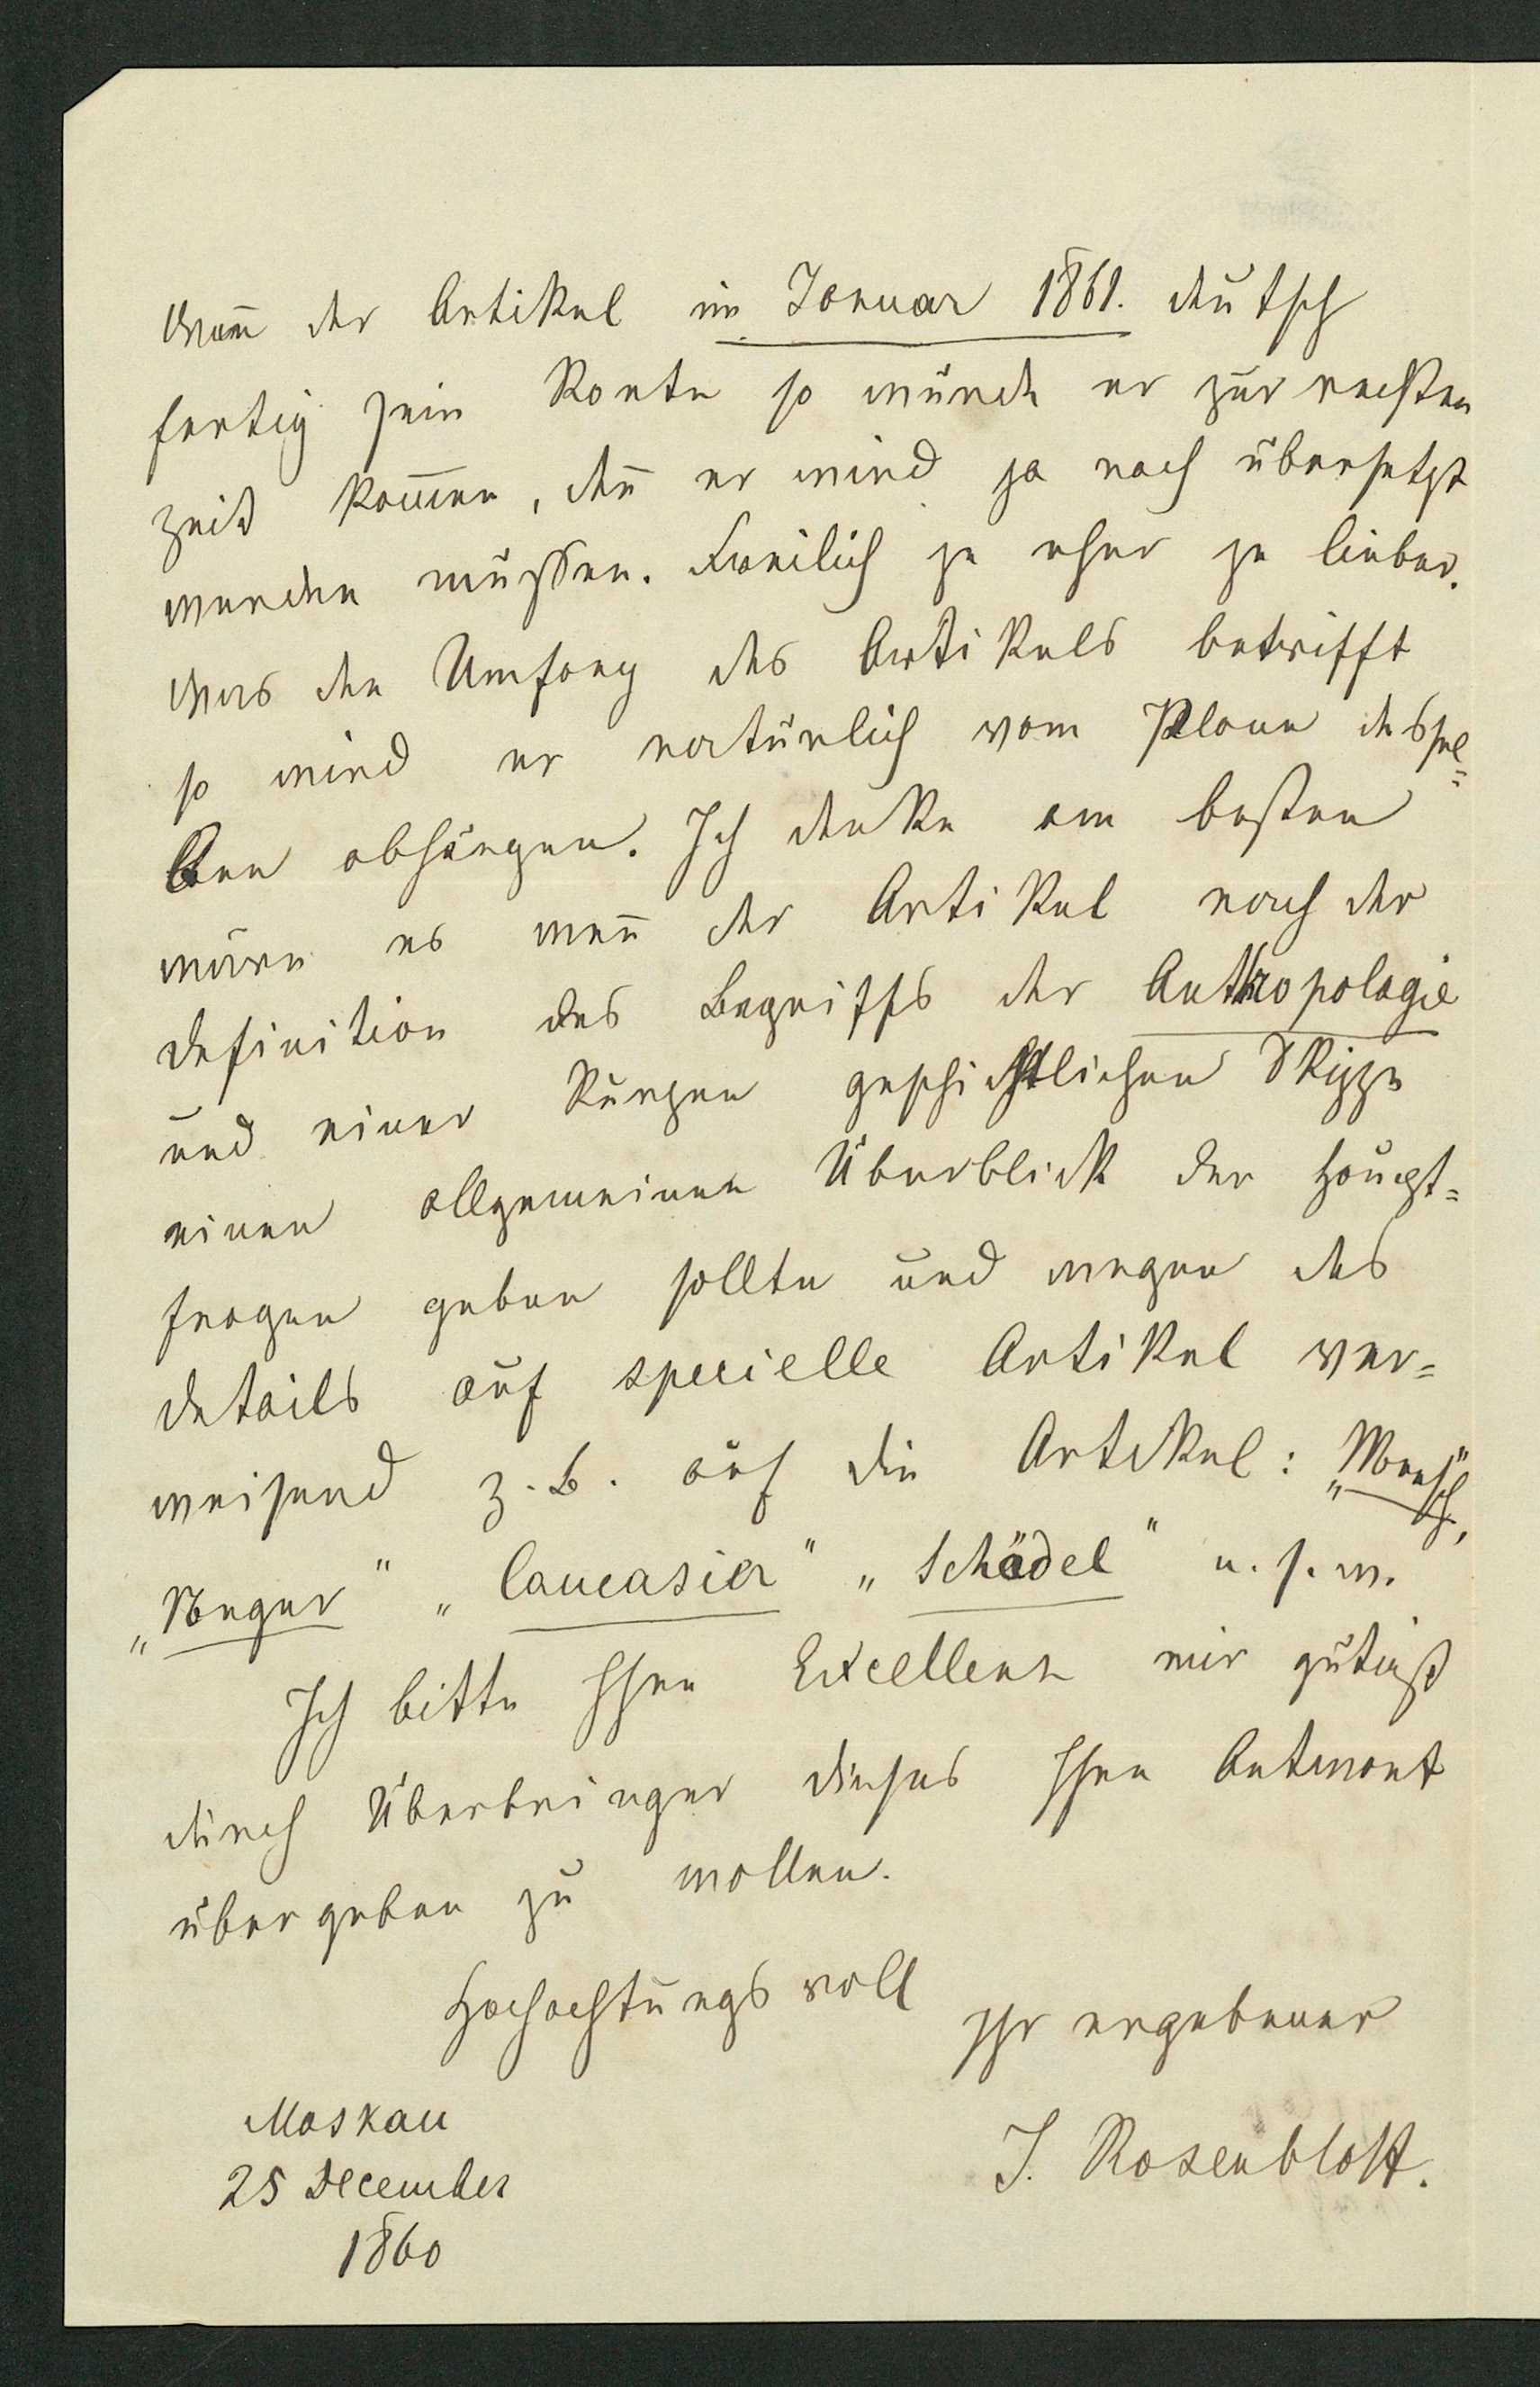 Wenn der Artikel im Januar 1861. deutsch
fertig sein konte so würde er zur rechten
Zeit kom̄en, den̄ er wird ja noch übersetzt
werden müssen. Freilich je eher je lieber.
Was den Umfang des Artikels betrifft
so wird er natürlich vom Plane dessel=
ben abhängen. Ich denke am besten
wäre es wen̄ der Artikel nach der
Definition des Begriffs der Anthropologie
und einer kurzen geschichtlichen Skizze
einen allgemeinen Überblick der Haupt=
fragen geben sollte und wegen des
Details auf specielle Artikel ver=
weisend z. B. auf die Artikel: „Mensch",
„Neger" „Caucasier" „Schädel" u. s. w.
Ich bitte Ihre Excellenz mir gütigst
durch Überbringer dieses Ihre Antwort
übergeben zu wollen.
Hochachtungsvoll
Ihr ergebener
J. Rosenblatt.
Moskau
25 December
1860